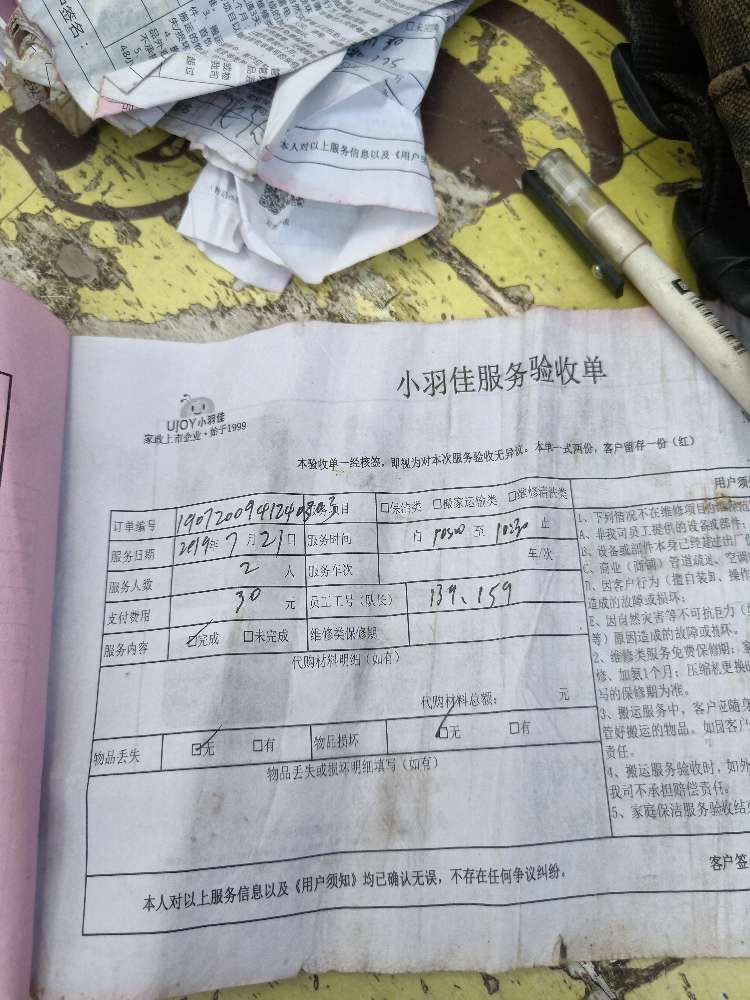 品签名：
□未完成
本人对以上服务信息以及《用户须
小羽佳服务验收单
UJOY小羽佳
家政上市企业·始于1999
本验收单一经核签，即视为对本次服务验收无异议。本单一式两份，客户留存一份（红）
订单编号 服务项目 □保洁类 □搬家运输类 □维修清洗类
服务日期 2019年7月21日 服务时间 自 1000 至 1030 止
服务人数 2 人 服务车次 车/次
支付费用 30 元 员工工号（队长） 139、159
服务内容 ☑完成 □未完成 维修类保修期
代购材料明细（如有）
代购材料总额： 元
物品丢失 ☑无 □有 物品损坏 ☑无 □有
物品丢失或损坏明细填写（如有）
本人对以上服务信息以及《用户须知》均已确认无误，不存在任何争议纠纷。
用户须知
1、下列情况不在维修项目的保修
A、非我司员工提供的设备或部件
B、设备或部件本身已经超过出厂
C、商业（商铺）管道疏通、空调
D、因客户行为（擅自装卸、操作
造成的故障或损坏；
E、因自然灾害等不可抗力（
等）原因造成的故障或损坏。
2、维修类服务免费保修期：家
修、加氨1个月；压缩机更换
写的保修期为准。
3、搬运服务中，客户应随身
管好搬运的物品。如因客户
责任。
4、搬运服务验收时，如外
我司不承担赔偿责任。
5、家庭保洁服务验收结
客户签